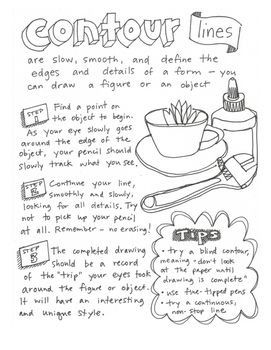 contour lines
are slow, smooth, and define the
edges and details of a form - you
can draw a figure or an object
STEP 1
Find a point on
the object to begin.
As your eye slowly goes
around the edge of the
object, your pencil should
slowly track what you see.
STEP 2
Continue your line,
smoothly and slowly,
looking for all details. Try
not to pick up your pencil
at all. Remember - no erasing!
STEP 3
The completed drawing
should be a record
of the "trip" your eyes took
around the figure or object.
It will have an interesting
and unique style.
TIPS
• try a blind contour,
meaning - don't look
at the paper until
drawing is complete"
• use fine-tipped pens
• try a continuous,
non-stop line